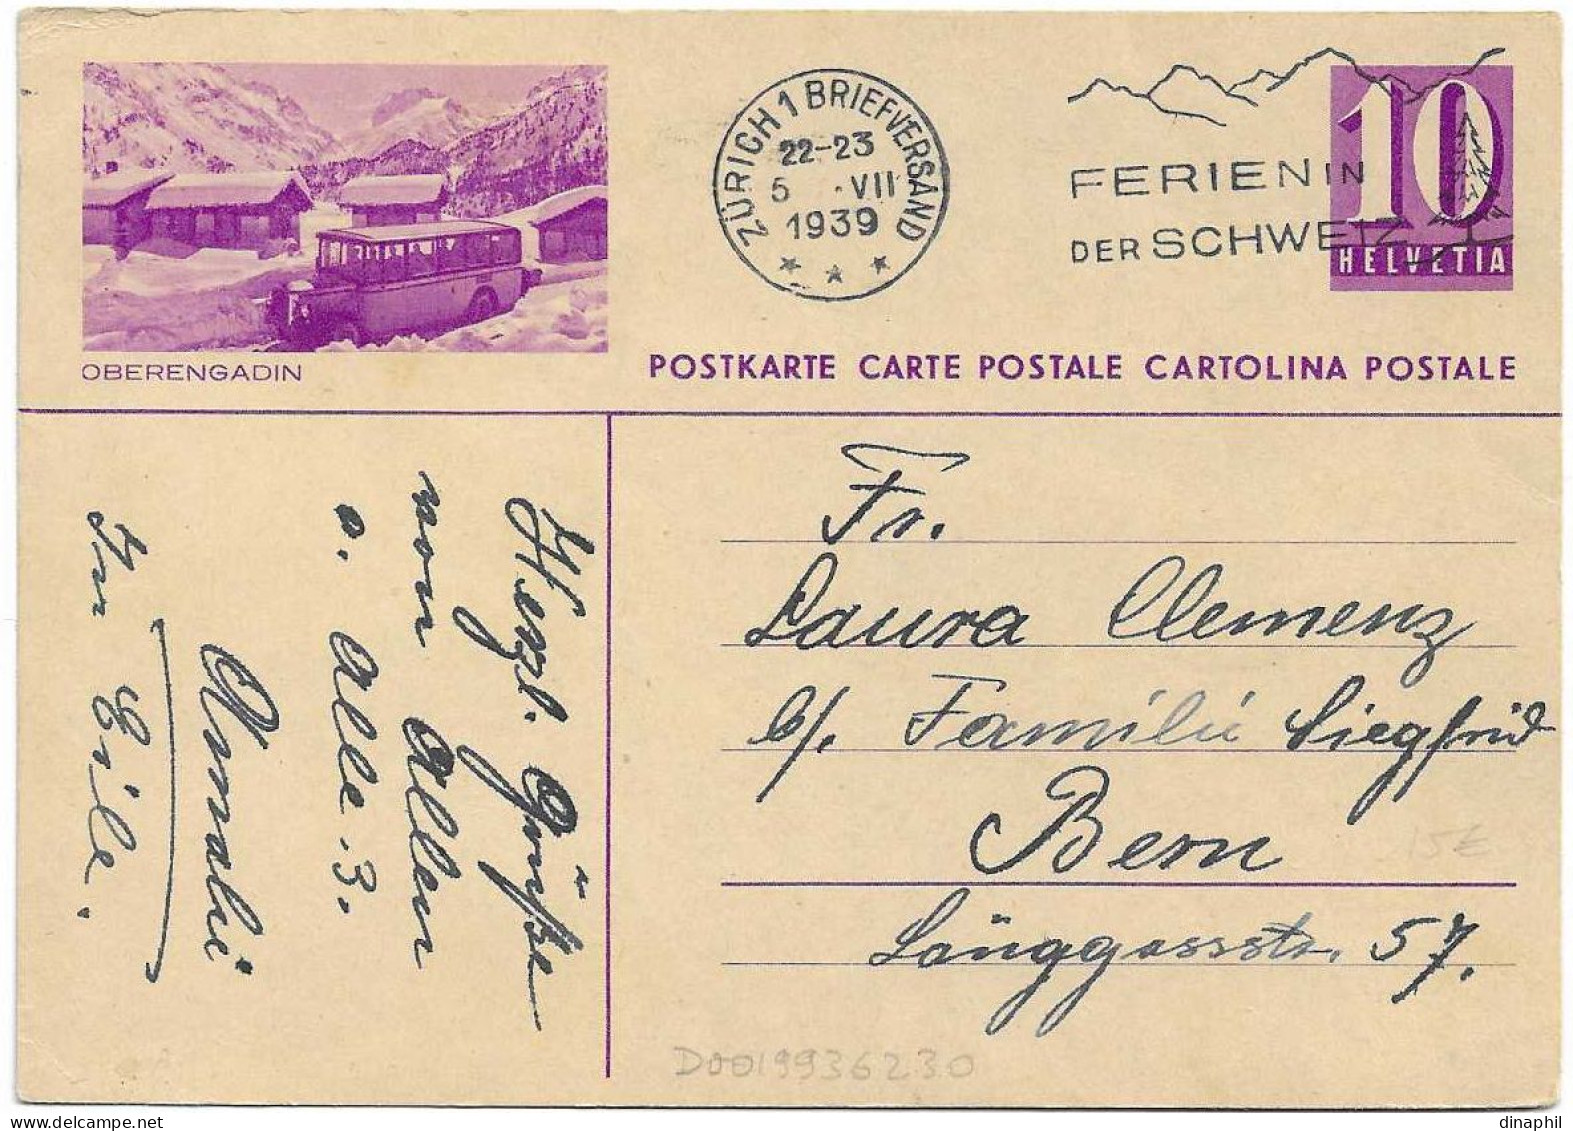 OBERENGADIN
ZÜRICH 1 BRIEFVERSAND
22-23
5 . VII
1939
FERIEN IN
DER SCHWEIZ
10
HELVETIA
POSTKARTE CARTE POSTALE CARTOLINA POSTALE
Herzl. Grüsse
von Allen
o. Alle 3.
Amalie
In Eile.
Fr.
Laura Clemenz
b/. Familie Siegfrid
Bern
Länggassstr. 57.
15€
D0019936230
dinaphil